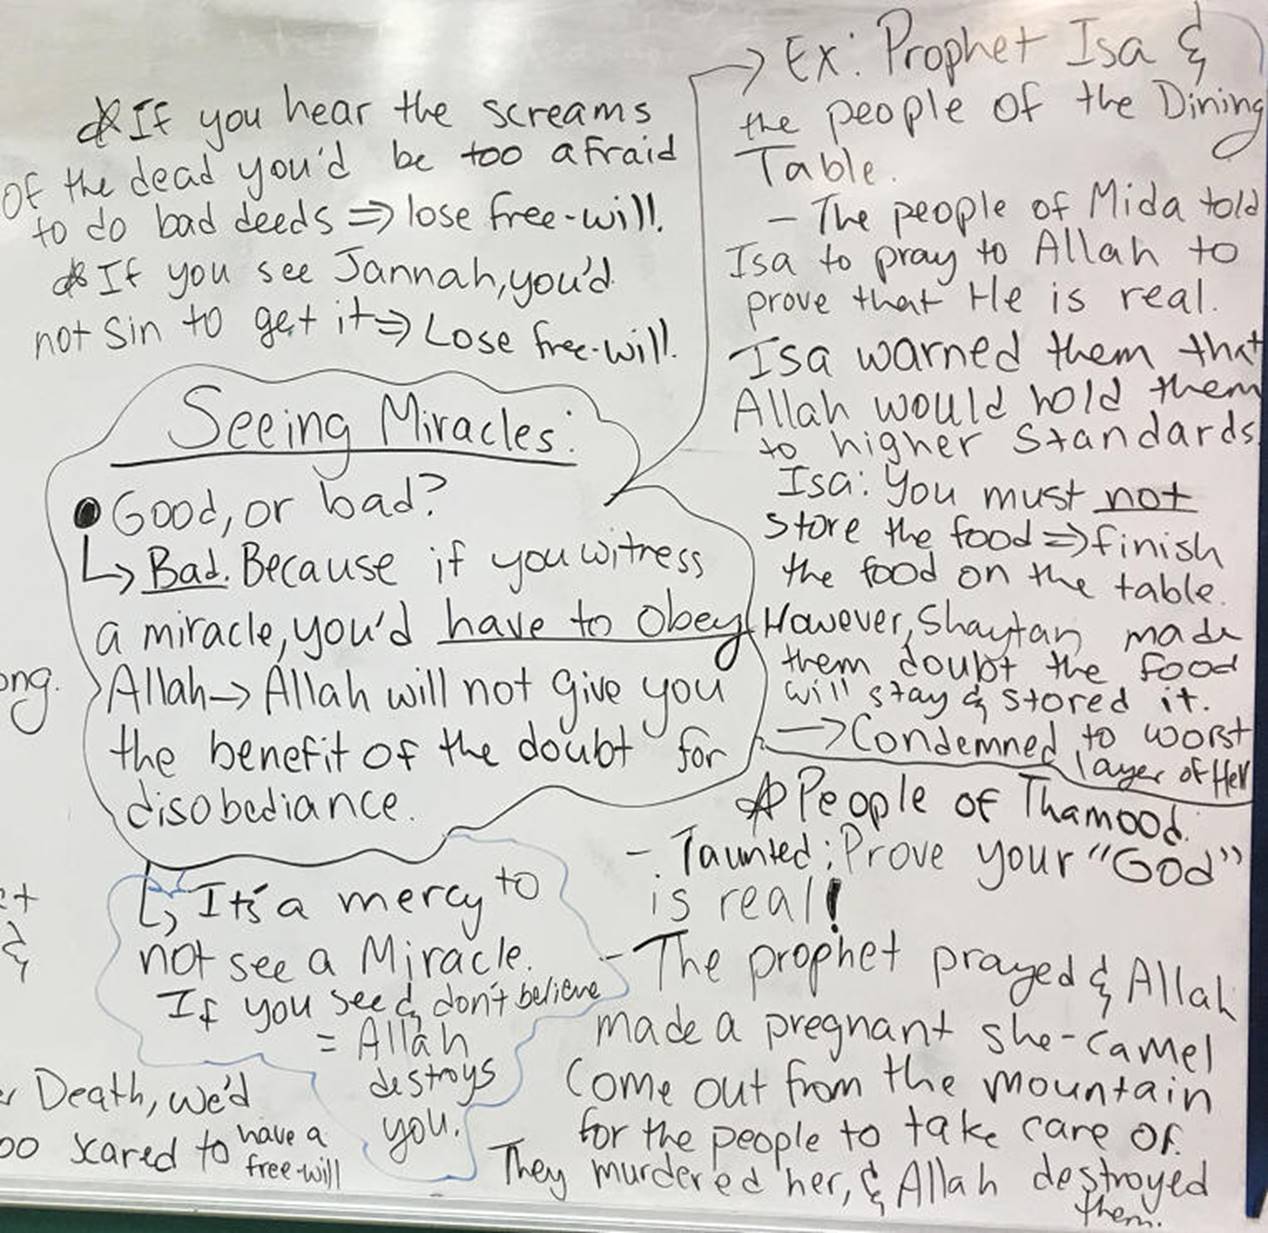 If you hear the screams
of the dead you'd be too afraid
to do bad deeds ⇒ lose free-will.
If you see Jannah, you'd
not sin to get it ⇒ Lose free-will.
Seeing Miracles:
● Good, or bad?
↳ Bad. Because if you witness
a miracle, you'd have to obey
Allah → Allah will not give you
the benefit of the doubt for
disobediance.
↳ It's a mercy to
not see a Miracle.
If you see & don't believe
= Allah
destroys
you.
ong.
&
Death, we'd
scared to have a
free-will
→ Ex: Prophet Isa &
the people of the Dining
Table.
- The people of Mida told
Isa to pray to Allah to
prove that He is real.
Isa warned them that
Allah would hold them
to higher standards.
Isa: You must not
store the food ⇒ finish
the food on the table.
However, Shaytan made
them doubt the food
will stay & stored it.
→ Condemned to worst
layer of Hell
People of Thamood.
- Taunted: Prove your "God"
is real!
- The prophet prayed & Allah
made a pregnant she-camel
come out from the mountain
for the people to take care of.
They murdered her, & Allah destroyed
them.